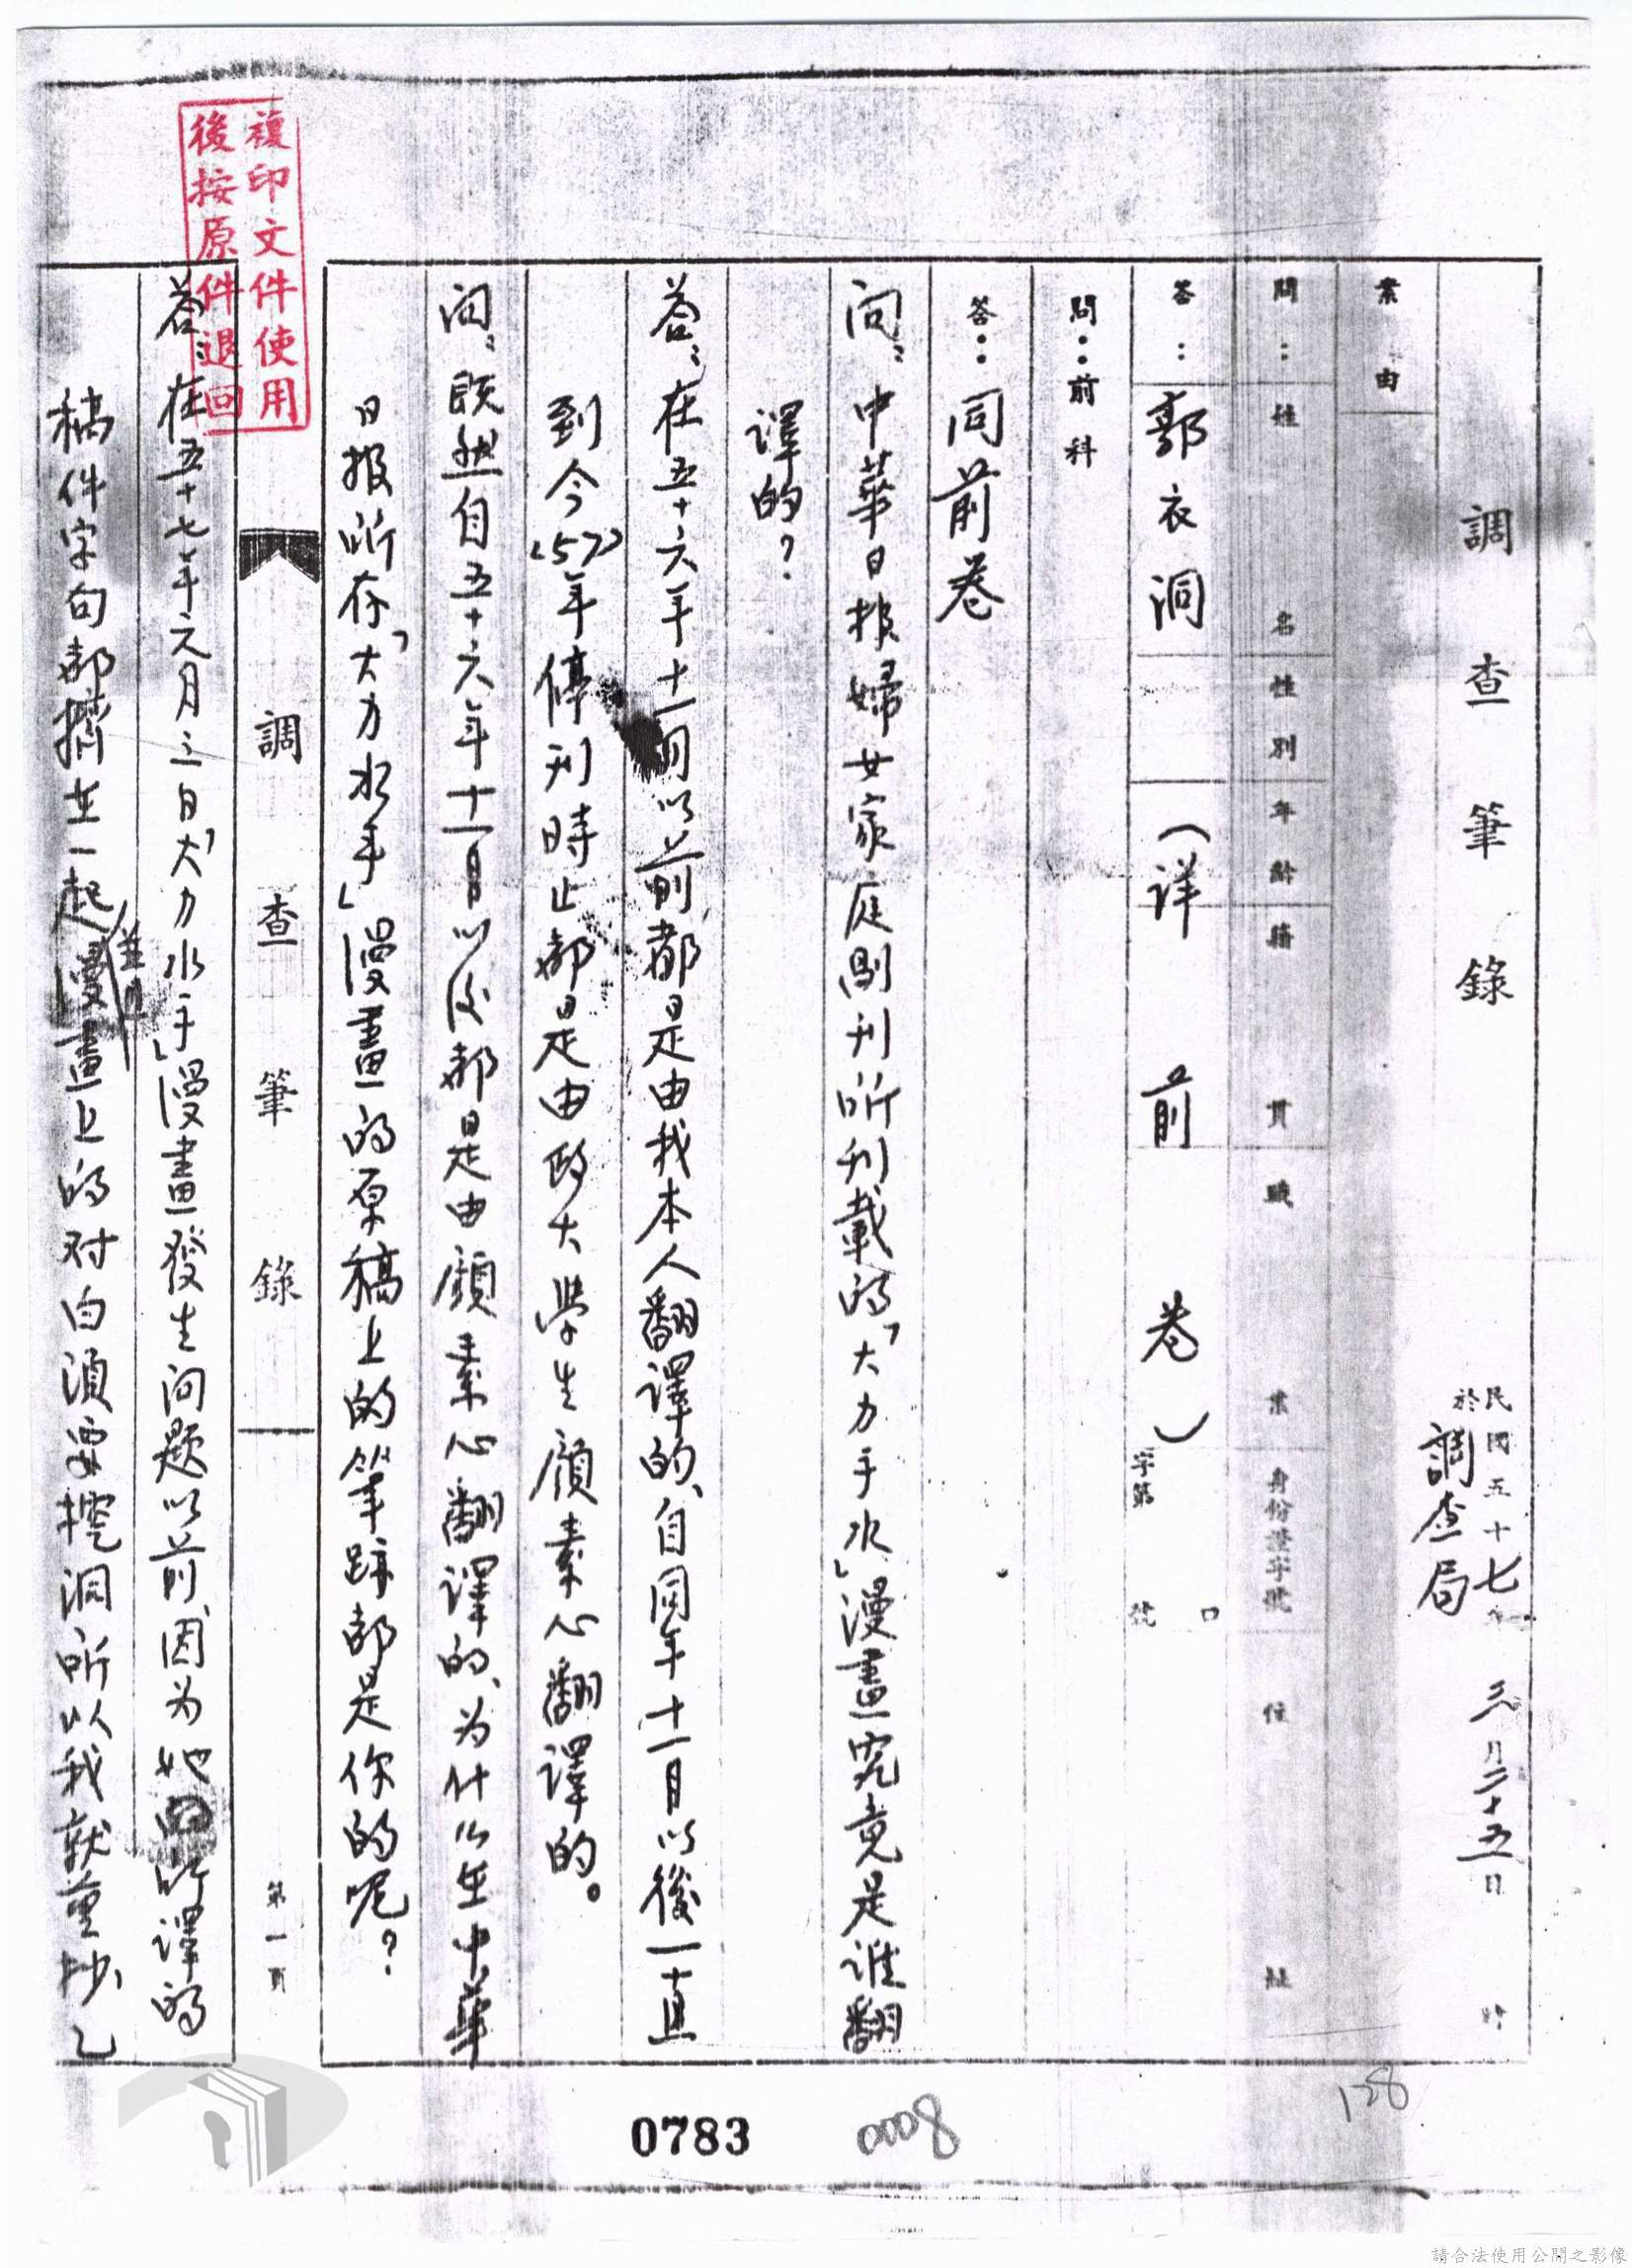 調查筆錄
民國五十七年三月二十五日 時
於調查局
案由
問：姓名 性別 年齡 籍貫 職業 身份證字號 住址
答：郭衣洞（詳前卷）字第 號
問：前科
答：同前卷
問：中華日報婦女家庭副刊所刊載的「大力手水」漫畫究竟是誰翻
譯的？
答：在五十六年十一月以前都是由我本人翻譯的、自同年十一月以後一直
到今(57)年停刊時止都是由政大學生顧素心翻譯的。
問：既然自五十六年十一月以後都是由顧素心翻譯的、为什么在中華
日报所存「大力水手」漫畫的原稿上的筆跡都是你的呢？
調查筆錄
第一頁
答：在五十七年元月三日「大力水手」漫畫發生问题以前、因为她所譯的
稿件字句都擠在一起並且漫畫上的对白須要挖洞所以我就重抄、乙
複印文件使用
後按原件退回
0783
0008
128
請合法使用公開之影像